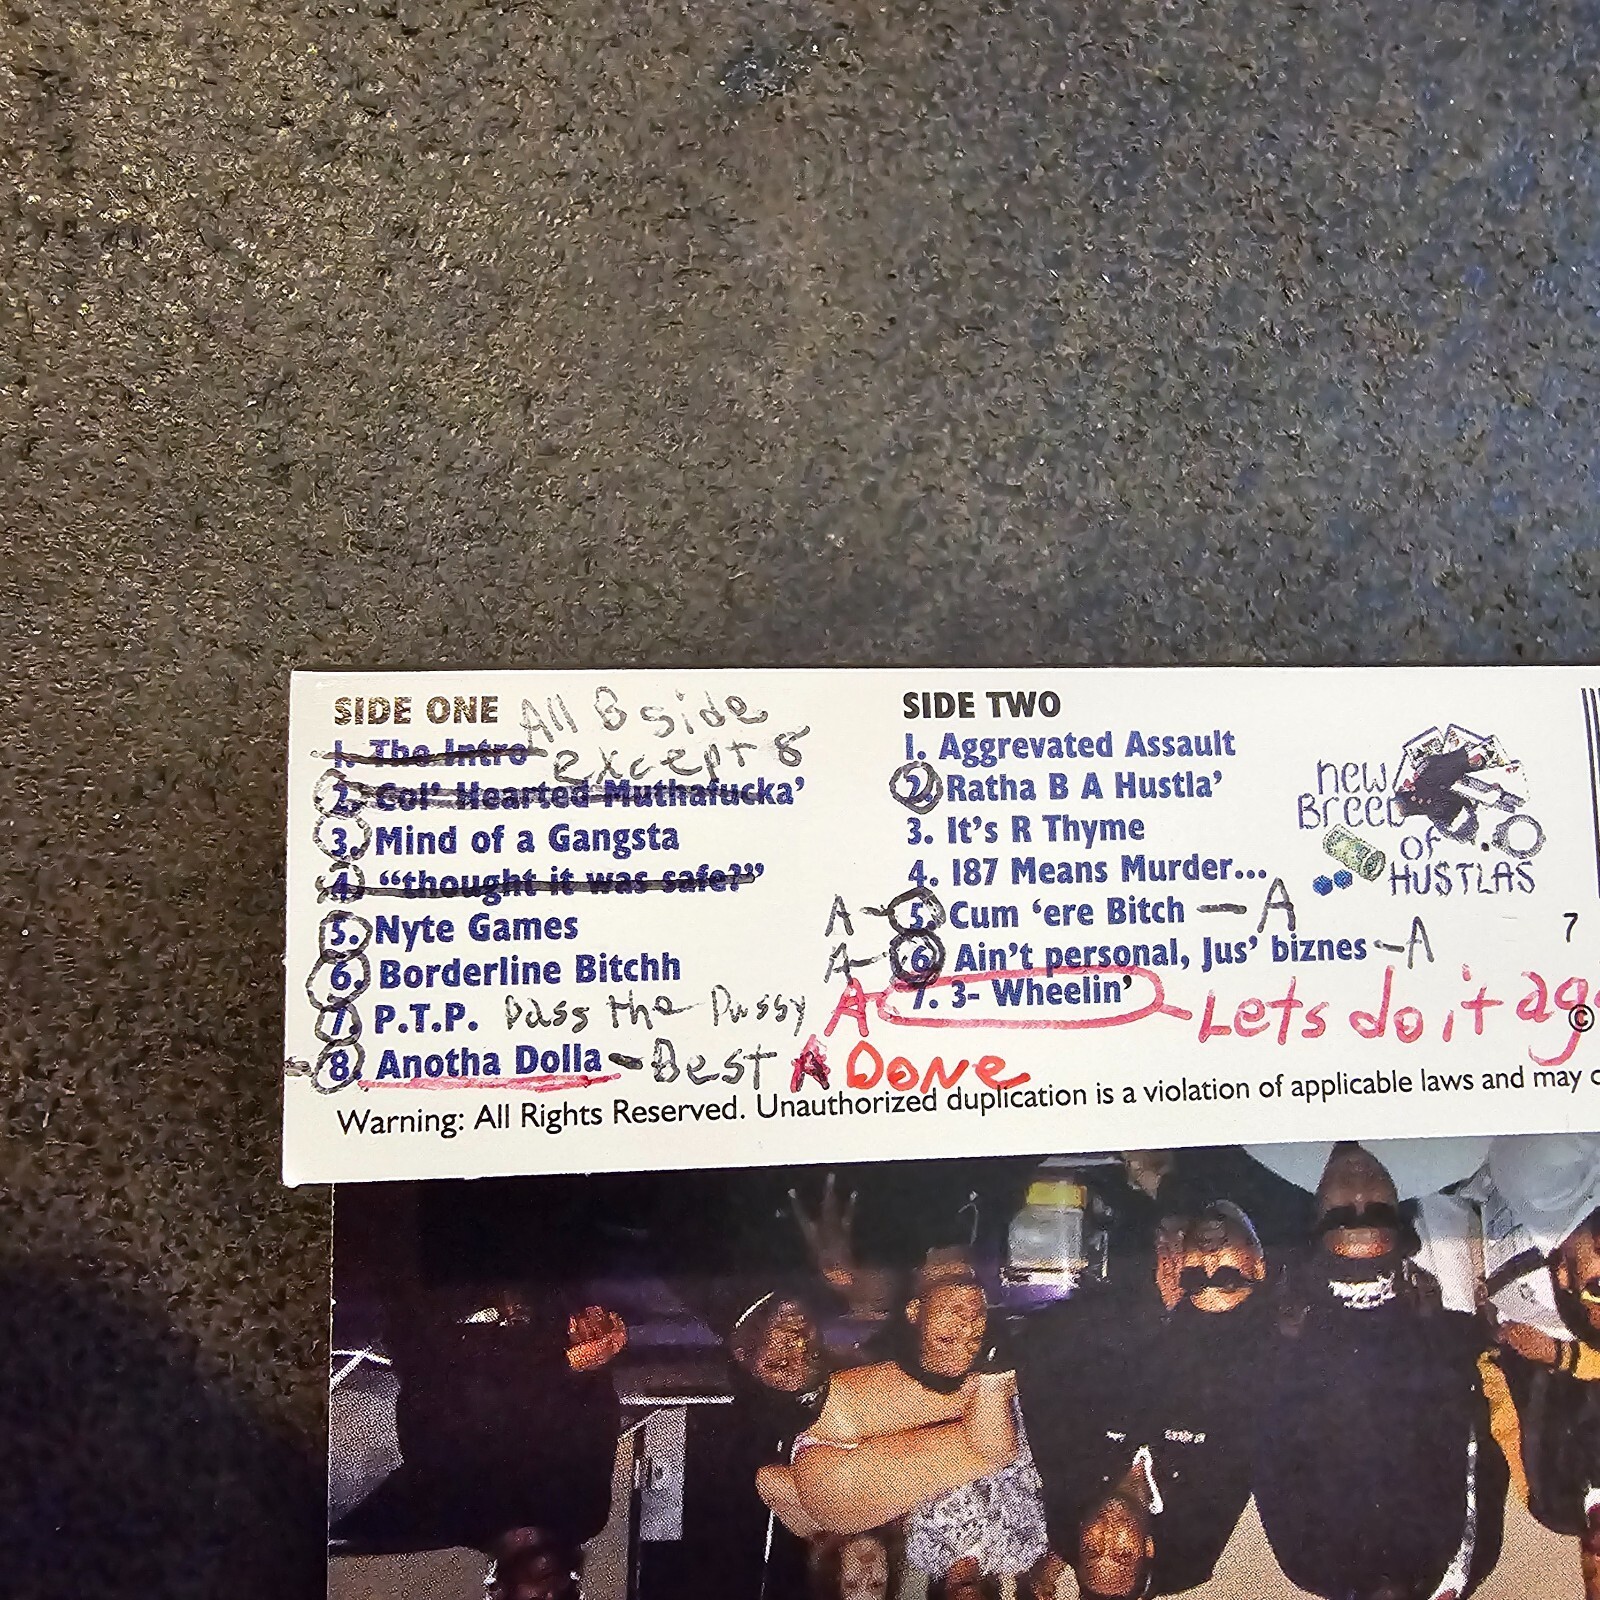 SIDE ONE All B side
1. The Intro except 8
2. Col' Hearted Muthafucka'
3. Mind of a Gangsta
4. "thought it was safe?"
5. Nyte Games
6. Borderline Bitchh
7. P.T.P. Pass the Pussy
8. Anotha Dolla - Best A Done
SIDE TWO
1. Aggrevated Assault
2. Ratha B A Hustla'
3. It's R Thyme
4. 187 Means Murder...
A - 5. Cum 'ere Bitch - A
A - 6. Ain't personal, Jus' biznes - A
A 7. 3- Wheelin' - Lets do it ag
new
BREED
of
HU$TLAS
7
©
Warning: All Rights Reserved. Unauthorized duplication is a violation of applicable laws and may